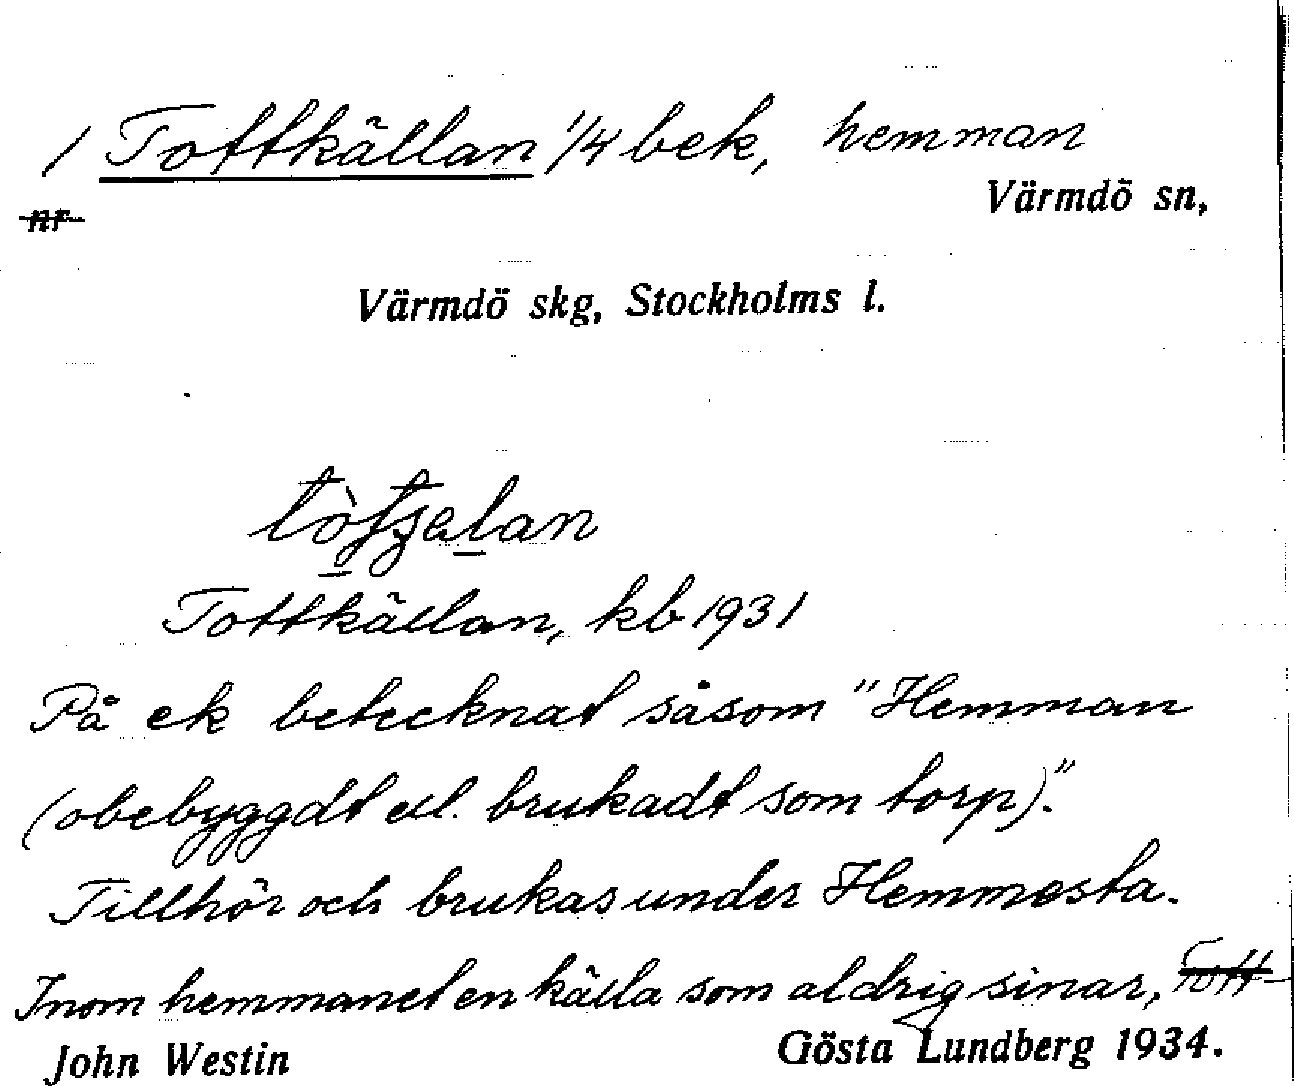 1 Tottkällan 1/4 bek, hemman
nr
Värmdö sn,
Värmdö skg, Stockholms l.
Tottkällan, kb 1931
På ek betecknat såsom "Hemman
(obebyggdt ell. brukadt som torp)."
Tillhör och brukas under Hemmesta.
Inom hemmanet en källa som aldrig sinar, Tott-
John Westin
Gösta Lundberg 1934.